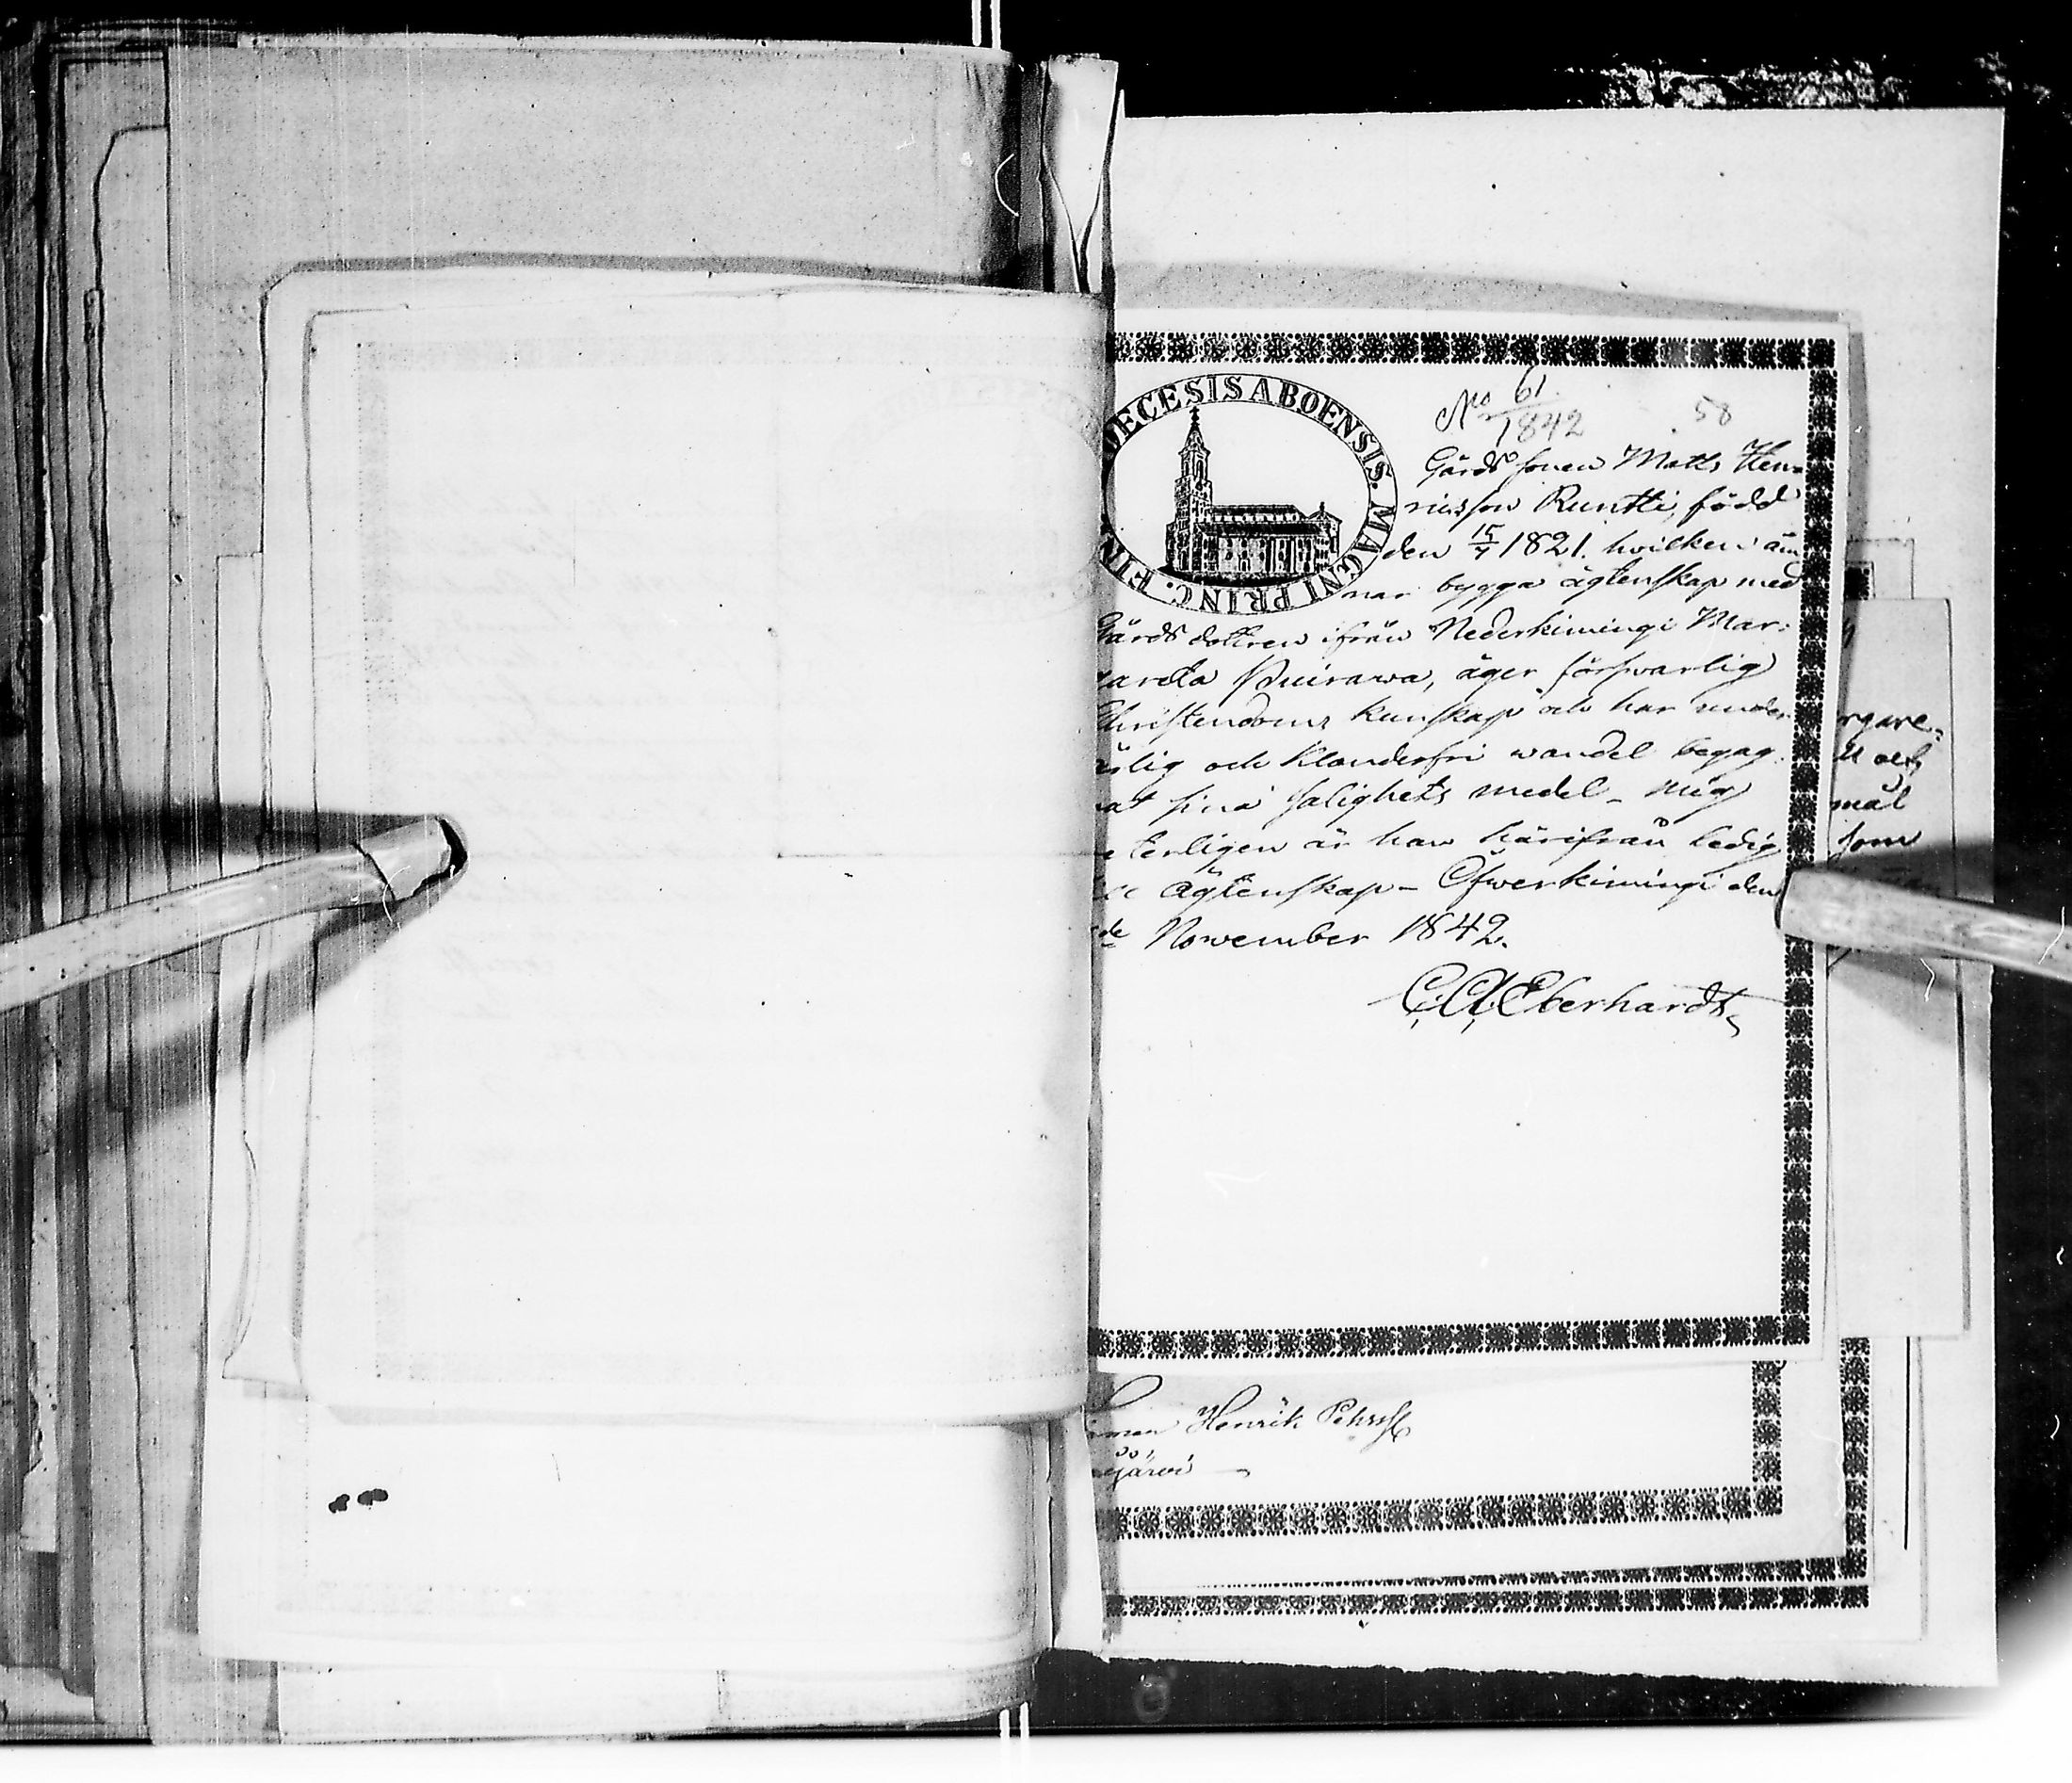 DECESIS ABOENSIS. MAGNI PRINC. FIN
No 61
1842
58
Gårds sonen Matts Hen-
ricsson Runtti, född
den 15/7 1821. hvilken äm
nar bygga ägtenskap med
Gårds dottren ifrån Nederkimingi Mar-
gareta Puirawa, äger förswarlig
Christendoms kunskap och har under
ärlig och klanderfri wandel begag-
nat sina salighets medel
terligen är han härifrån ledig
ägtenskap - Öfwerkimingi den
de November 1842.
C. A. Eberhardt
Henrik Pehrss
järvi
rgare-
och
mål
som